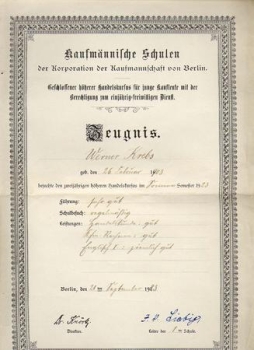 Kaufmännische Schulen
der Korporation der Kaufmannschaft von Berlin.
Geschlossener höherer Handelskursus für junge Kaufleute mit der
Berechtigung zum einjährig-freiwilligen Dienst.
Zeugnis.
Werner Krebs
geb. den 26. Februar
besuchte den zweijährigen höheren Handelskursus im Semester
Führung: sehr gut
Schulbesuch: regelmäßig
Leistungen: Handelskunde: gut
gut
ziemlich gut
Berlin, den September
Direktor. Leiter der Schule.